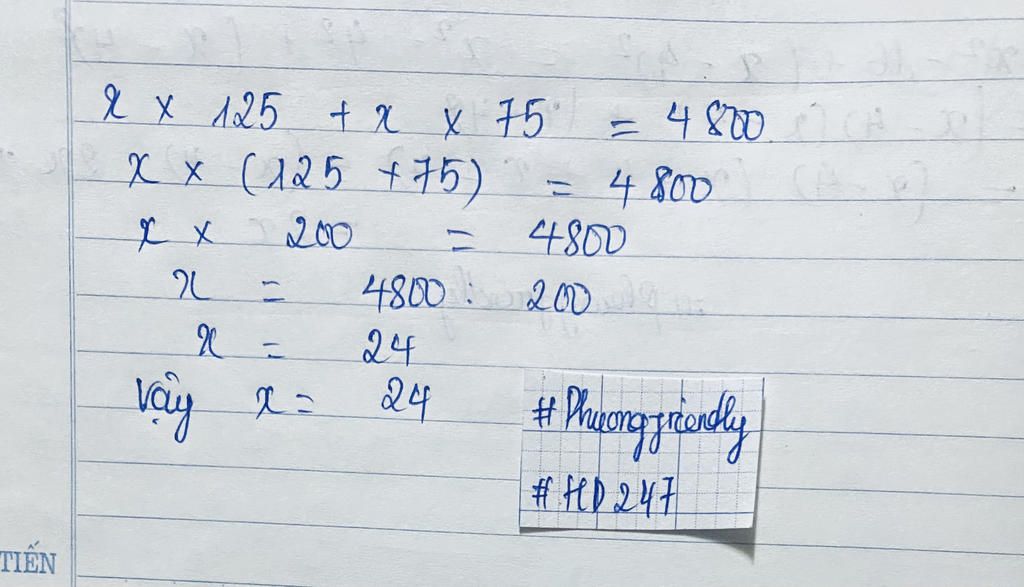 x × 125 + x × 75 = 4800
x × (125 + 75) = 4800
x × 200 = 4800
x = 4800 : 200
x = 24
Vậy x = 24
#Phuongfriendly
#HD247
TIẾN